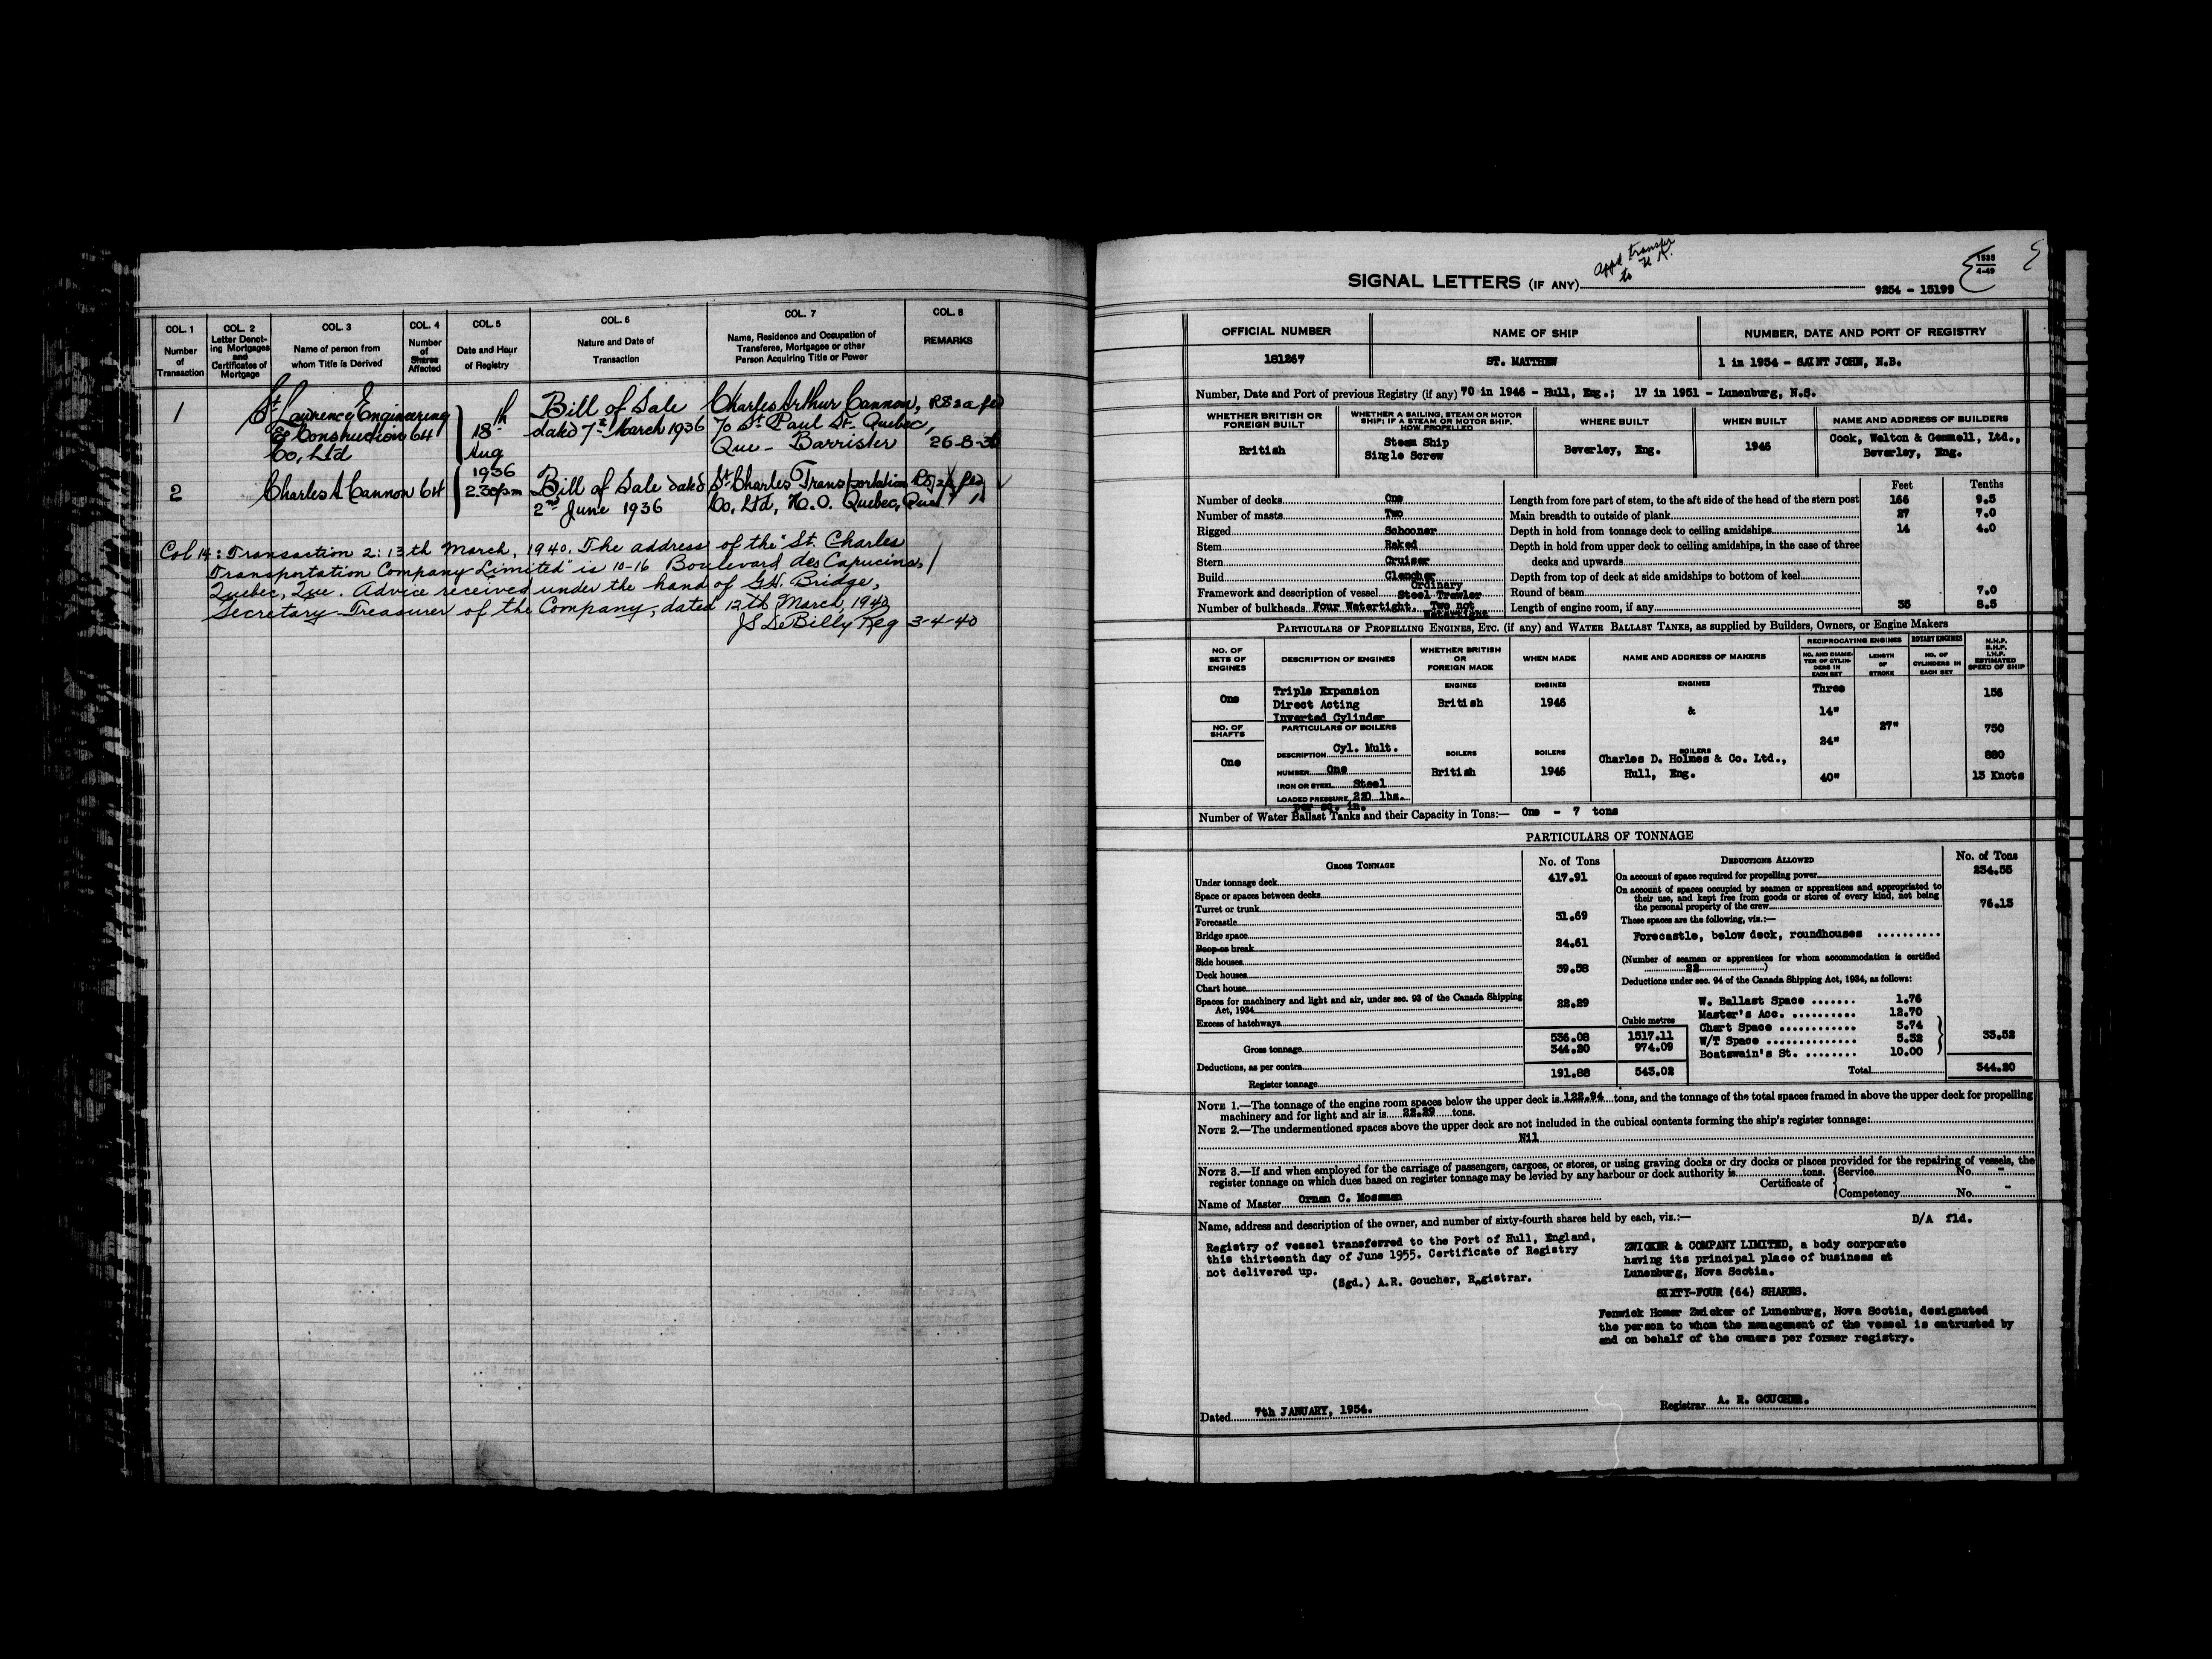 COL. 1
Number
of
Transaction
COL. 2
Letter Denot-
ing Mortgages
and
Certificates of
Mortgage
COL. 3
Name of person from
whom Title is Derived
COL. 4
Number
of
Shares
Affected
COL. 5
Date and Hour
of Registry
COL. 6
Nature and Date of
Transaction
COL. 7
Name, Residence and Occupation of
Transferee, Mortgagee or other
Person Acquiring Title or Power
COL. 8
REMARKS
1
St Lawrence Engineering
& Construction 64
Co, Ltd
18
Aug
1936
2.30pm
Bill of Sale
dated 7th March 1936
Charles Arthur Cannon,
70 St. Paul St. Quebec,
Que - Barrister
26-8-36
2
Charles A Cannon 64
Bill of Sale dated
2nd June 1936
St Charles Transportation
Co, Ltd, H.O. Quebec, Que
Col 14: Transaction 2: 13th March, 1940. The address of the "St. Charles
Transportation Company Limited" is 10-16 Boulevard des Capucines,
Quebec, Que. Advice received under the hand of G.H. Bridge,
Secretary-Treasurer of the Company, dated 12th March, 1940
JS DeBilly Reg 3-4-40
Appd transfer
to U.K.
SIGNAL LETTERS (IF ANY)
9254 - 15199
1535
4-49
5
OFFICIAL NUMBER
NAME OF SHIP
NUMBER, DATE AND PORT OF REGISTRY
181267
ST. MATTHEW
1 in 1954 - SAINT JOHN, N.B.
Number, Date and Port of previous Registry (if any) 70 in 1946 - Hull, Eng.; 17 in 1951 - Lunenburg, N.S.
WHETHER BRITISH OR
FOREIGN BUILT
WHETHER A SAILING, STEAM OR MOTOR
SHIP; IF A STEAM OR MOTOR SHIP,
HOW PROPELLED
WHERE BUILT
WHEN BUILT
NAME AND ADDRESS OF BUILDERS
British
Steam Ship
Single Screw
Beverley, Eng.
1946
Cook, Welton & Gemmell, Ltd.,
Beverley, Eng.
Feet
Tenths
Number of decks One
Number of masts Two
Rigged Schooner
Stem Raked
Stern Cruiser
Build Clencher
Ordinary
Framework and description of vessel Steel Trawler
Number of bulkheads Four Watertight Two not
Watertight
Length from fore part of stem, to the aft side of the head of the stern post 166 9.5
Main breadth to outside of plank 27 7.0
Depth in hold from tonnage deck to ceiling amidships 14 4.0
Depth in hold from upper deck to ceiling amidships, in the case of three
decks and upwards
Depth from top of deck at side amidships to bottom of keel
Round of beam 7.0
Length of engine room, if any 35 8.5
PARTICULARS OF PROPELLING ENGINES, ETC. (if any) and WATER BALLAST TANKS, as supplied by Builders, Owners, or Engine Makers
NO. OF
SETS OF
ENGINES
DESCRIPTION OF ENGINES
WHETHER BRITISH
OR
FOREIGN MADE
WHEN MADE
NAME AND ADDRESS OF MAKERS
RECIPROCATING ENGINES
ROTARY ENGINES
NO. AND DIAME-
TER OF CYLIN-
DERS IN
EACH SET
LENGTH
OF
STROKE
NO. OF
CYLINDERS IN
EACH SET
N.H.P.
B.H.P.
I.H.P.
ESTIMATED
SPEED OF SHIP
One
Triple Expansion
Direct Acting
Inverted Cylinder
ENGINES
British
ENGINES
1946
ENGINES
&
Three
14"
24"
40"
27"
156
750
880
13 Knots
NO. OF
SHAFTS
One
PARTICULARS OF BOILERS
DESCRIPTION Cyl. Mult.
NUMBER One
IRON OR STEEL Steel
LOADED PRESSURE 220 lbs.
per sq. in.
BOILERS
British
BOILERS
1946
BOILERS
Charles D. Holmes & Co. Ltd.,
Hull, Eng.
Number of Water Ballast Tanks and their Capacity in Tons:— One - 7 tons
PARTICULARS OF TONNAGE
GROSS TONNAGE
No. of Tons
Under tonnage deck 417.91
Space or spaces between decks
Turret or trunk
Forecastle 31.69
Bridge space
Poop or break 24.61
Side houses
Deck houses 39.58
Chart house
Spaces for machinery and light and air, under sec. 93 of the Canada Shipping
Act, 1934 22.29
Excess of hatchways
Cubic metres
Gross tonnage 536.08 1517.11
Deductions, as per contra 344.20 974.09
Register tonnage 191.88 543.02
DEDUCTIONS ALLOWED
No. of Tons
On account of space required for propelling power 234.55
On account of spaces occupied by seamen or apprentices and appropriated to
their use, and kept free from goods or stores of every kind, not being
the personal property of the crew 76.13
These spaces are the following, viz.:—
Forecastle, below deck, roundhouses
(Number of seamen or apprentices for whom accommodation is certified
22 )
Deductions under sec. 94 of the Canada Shipping Act, 1934, as follows:
W. Ballast Space 1.76
Master's Acc. 12.70
Chart Space 3.74
W/T Space 5.32
Boatswain's St. 10.00
33.52
Total 344.20
NOTE 1.—The tonnage of the engine room spaces below the upper deck is 122.94 tons, and the tonnage of the total spaces framed in above the upper deck for propelling
machinery and for light and air is 22.29 tons.
NOTE 2.—The undermentioned spaces above the upper deck are not included in the cubical contents forming the ship's register tonnage:
Nil
NOTE 3.—If and when employed for the carriage of passengers, cargoes, or stores, or using graving docks or dry docks or places provided for the repairing of vessels, the
register tonnage on which dues based on register tonnage may be levied by any harbour or dock authority is tons.
Certificate of
Service No. -
Competency No. -
Name of Master Ornan C. Mossman
Name, address and description of the owner, and number of sixty-fourth shares held by each, viz.:—
D/A fld.
Registry of vessel transferred to the Port of Hull, England,
this thirteenth day of June 1955. Certificate of Registry
not delivered up.
(Sgd.) A.R. Goucher, Registrar.
ZWICKER & COMPANY LIMITED, a body corporate
having its principal place of business at
Lunenburg, Nova Scotia.
SIXTY-FOUR (64) SHARES.
Fenwick Homer Zwicker of Lunenburg, Nova Scotia, designated
the person to whom the management of the vessel is entrusted by
and on behalf of the owners per former registry.
Dated 7th JANUARY, 1954.
Registrar A. R. GOUCHER.